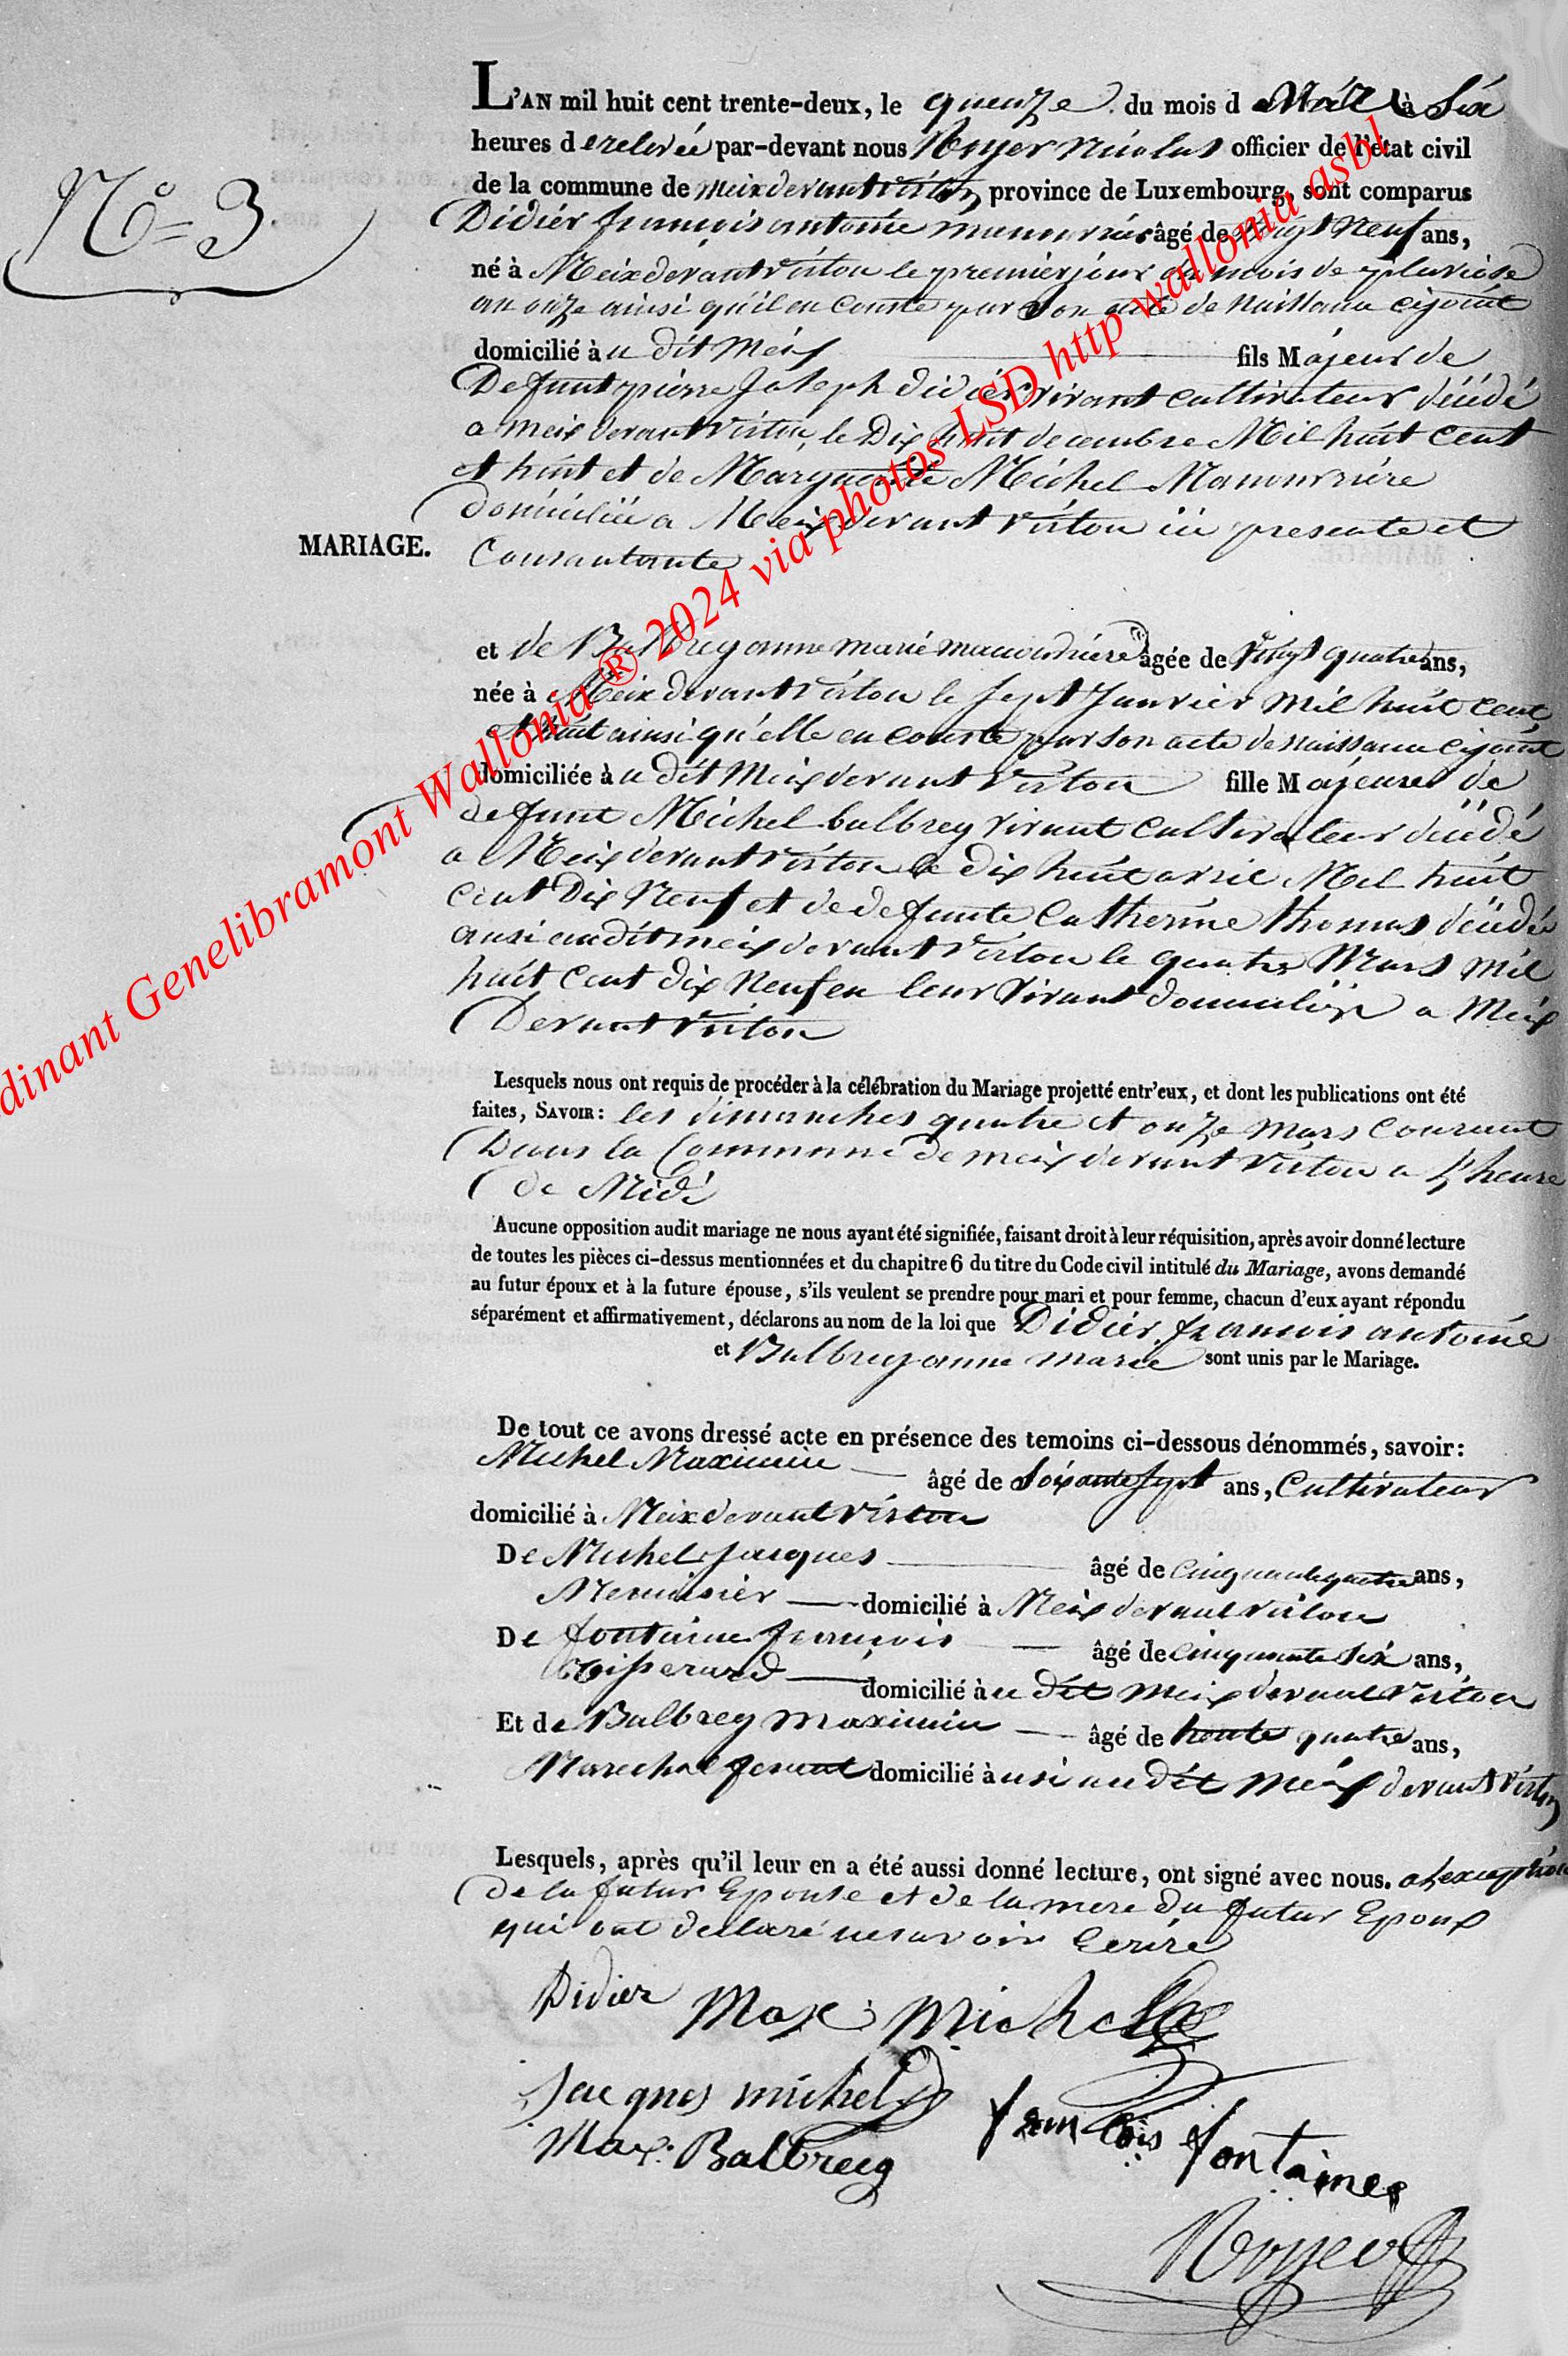 L'AN mil huit cent trente-deux, le quenze du mois de Mars à Six
heures de relevée par-devant nous Noyer Nicolas officier de l'état civil
de la commune de meix devant virton province de Luxembourg, sont comparus
N° = 3
Didier françois antoine manouvrier âgé de vingt Neuf ans,
né à Meix devant virton le premier jour du mois de pluviose
an onze ainsi qu'il en conste par son acte de naissance cijoint
domicilié à u dit Meix fils Majeur de
Defunt pierre Joseph didier vivant cultivateur décédé
a meix devant virton le Dix huit decembre Mil huit cent
et huit et de Marguerite Michel Manouvrière
domiciliée a Meix devant virton ici presente et
MARIAGE.
Consantante
et de Balbrey anne marie manouvrière agée de vingt quatre ans,
née à Meix devant virton le sept Janvier mil huit cent
et huit ainsi qu'elle en conste par son acte de naissance cijoint
domiciliée à u dit Meix devant virton fille Majeure de
defunt Michel balbrey vivant cultivateur décédé
a Meix devant virton le dix huit avril Mil huit
cent Dix Neuf et de defunte Catherine thomas décédé
ausi audit meix devant virton le quatre Mars mil
huit cent dix Neuf en leur vivant domiciliés a Meix
Devant virton
Lesquels nous ont requis de procéder à la célébration du Mariage projetté entr'eux, et dont les publications ont été
faites, SAVOIR: les dimanches quatre et onze mars courant
Dans la Commune de meix devant virton a l'heure
de Midi
Aucune opposition audit mariage ne nous ayant été signifiée, faisant droit à leur réquisition, après avoir donné lecture
de toutes les pièces ci-dessus mentionnées et du chapitre 6 du titre du Code civil intitulé du Mariage, avons demandé
au futur époux et à la future épouse, s'ils veulent se prendre pour mari et pour femme, chacun d'eux ayant répondu
séparément et affirmativement, déclarons au nom de la loi que Didier françois antoine
et Balbrey anne marie sont unis par le Mariage.
De tout ce avons dressé acte en présence des temoins ci-dessous dénommés, savoir:
Michel Maximin âgé de Soixante sept ans, Cultivateur
domicilié à Meix devant virton
De Michel Jacques âgé de cinquante quatre ans,
Menuisier domicilié à Meix devant virton
De fontaine françois âgé de cinquante six ans,
Tisserand domicilié à u dit meix devant virton
Et de Balbrey maximin âgé de trente quatre ans,
Marechal ferrant domicilié à usi au dit Meix devant virton
Lesquels, après qu'il leur en a été aussi donné lecture, ont signé avec nous. a l'exception
de la futur Epouse et de la mere du futur Epoux
qui ont declaré ne savoir Ecrire
Didier Max: Michel
Jacques michel
françois fontaines
Max: Balbrecq
Noyer
dinant Genelibramont Wallonia ® 2024 via photos LSD http wallonia asbl